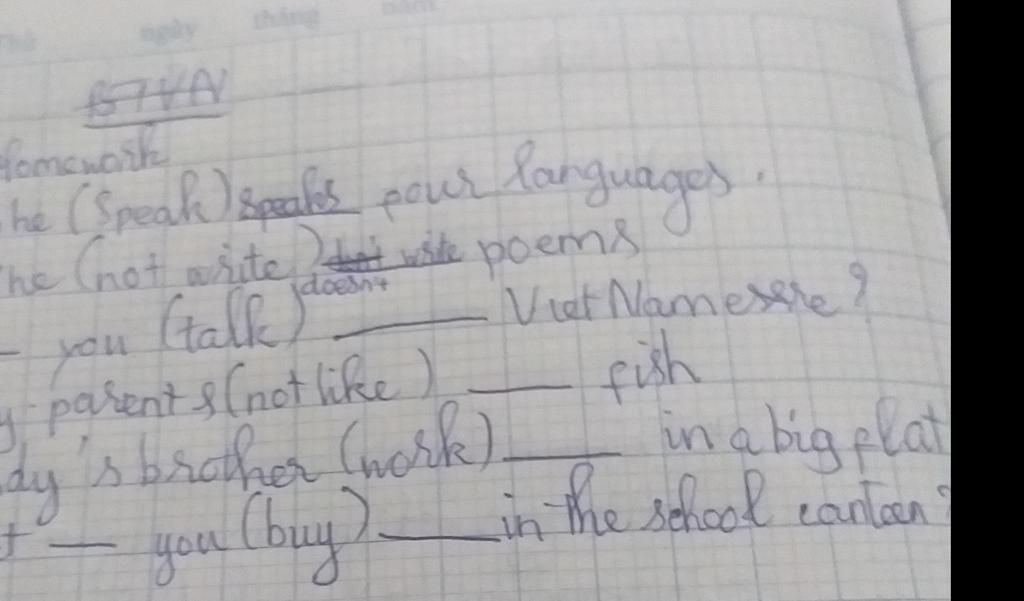 ngày tháng năm
Homework
he (Speak) speaks pour languages.
he (not write) doesn't write poems
— you (talk) ____ Viet Namese?
y parents (not like) ____ fish
dy's brother (work) ____ in a big flat
t ____ you (buy) ____ in the school canteen?